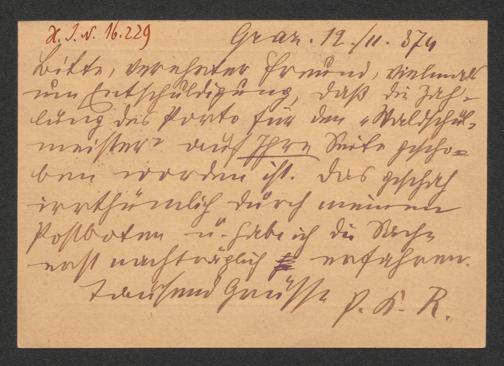 H. I. N. 16.229
Graz. 12./11. 874
Bitte, verehrter Freund, vielmals
um Entschuldigung, daß die Zah-
lung des Porto für den „Waldschul-
meister" auf Ihre Seite gescho-
ben worden ist. Das geschah
irrthümlich durch meinen
Postboten u. habe ich die Sache
erst nachträglich erfahren.
Tausend Grüsse P. K. R.